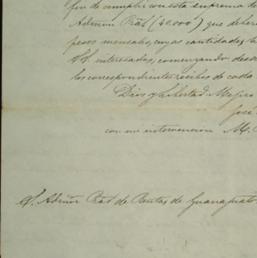 fin de cumplir con esta suprema de
Admon Pral (30.000) que deberá
pesos mensales, cuyas cantidades
interesados, comenzando desde
los correspondientes recibos de cada
Dios y Libertad Mejico
José
con mi intervencion M.
Sr. Admor Pral de Rentas de Guanajuato